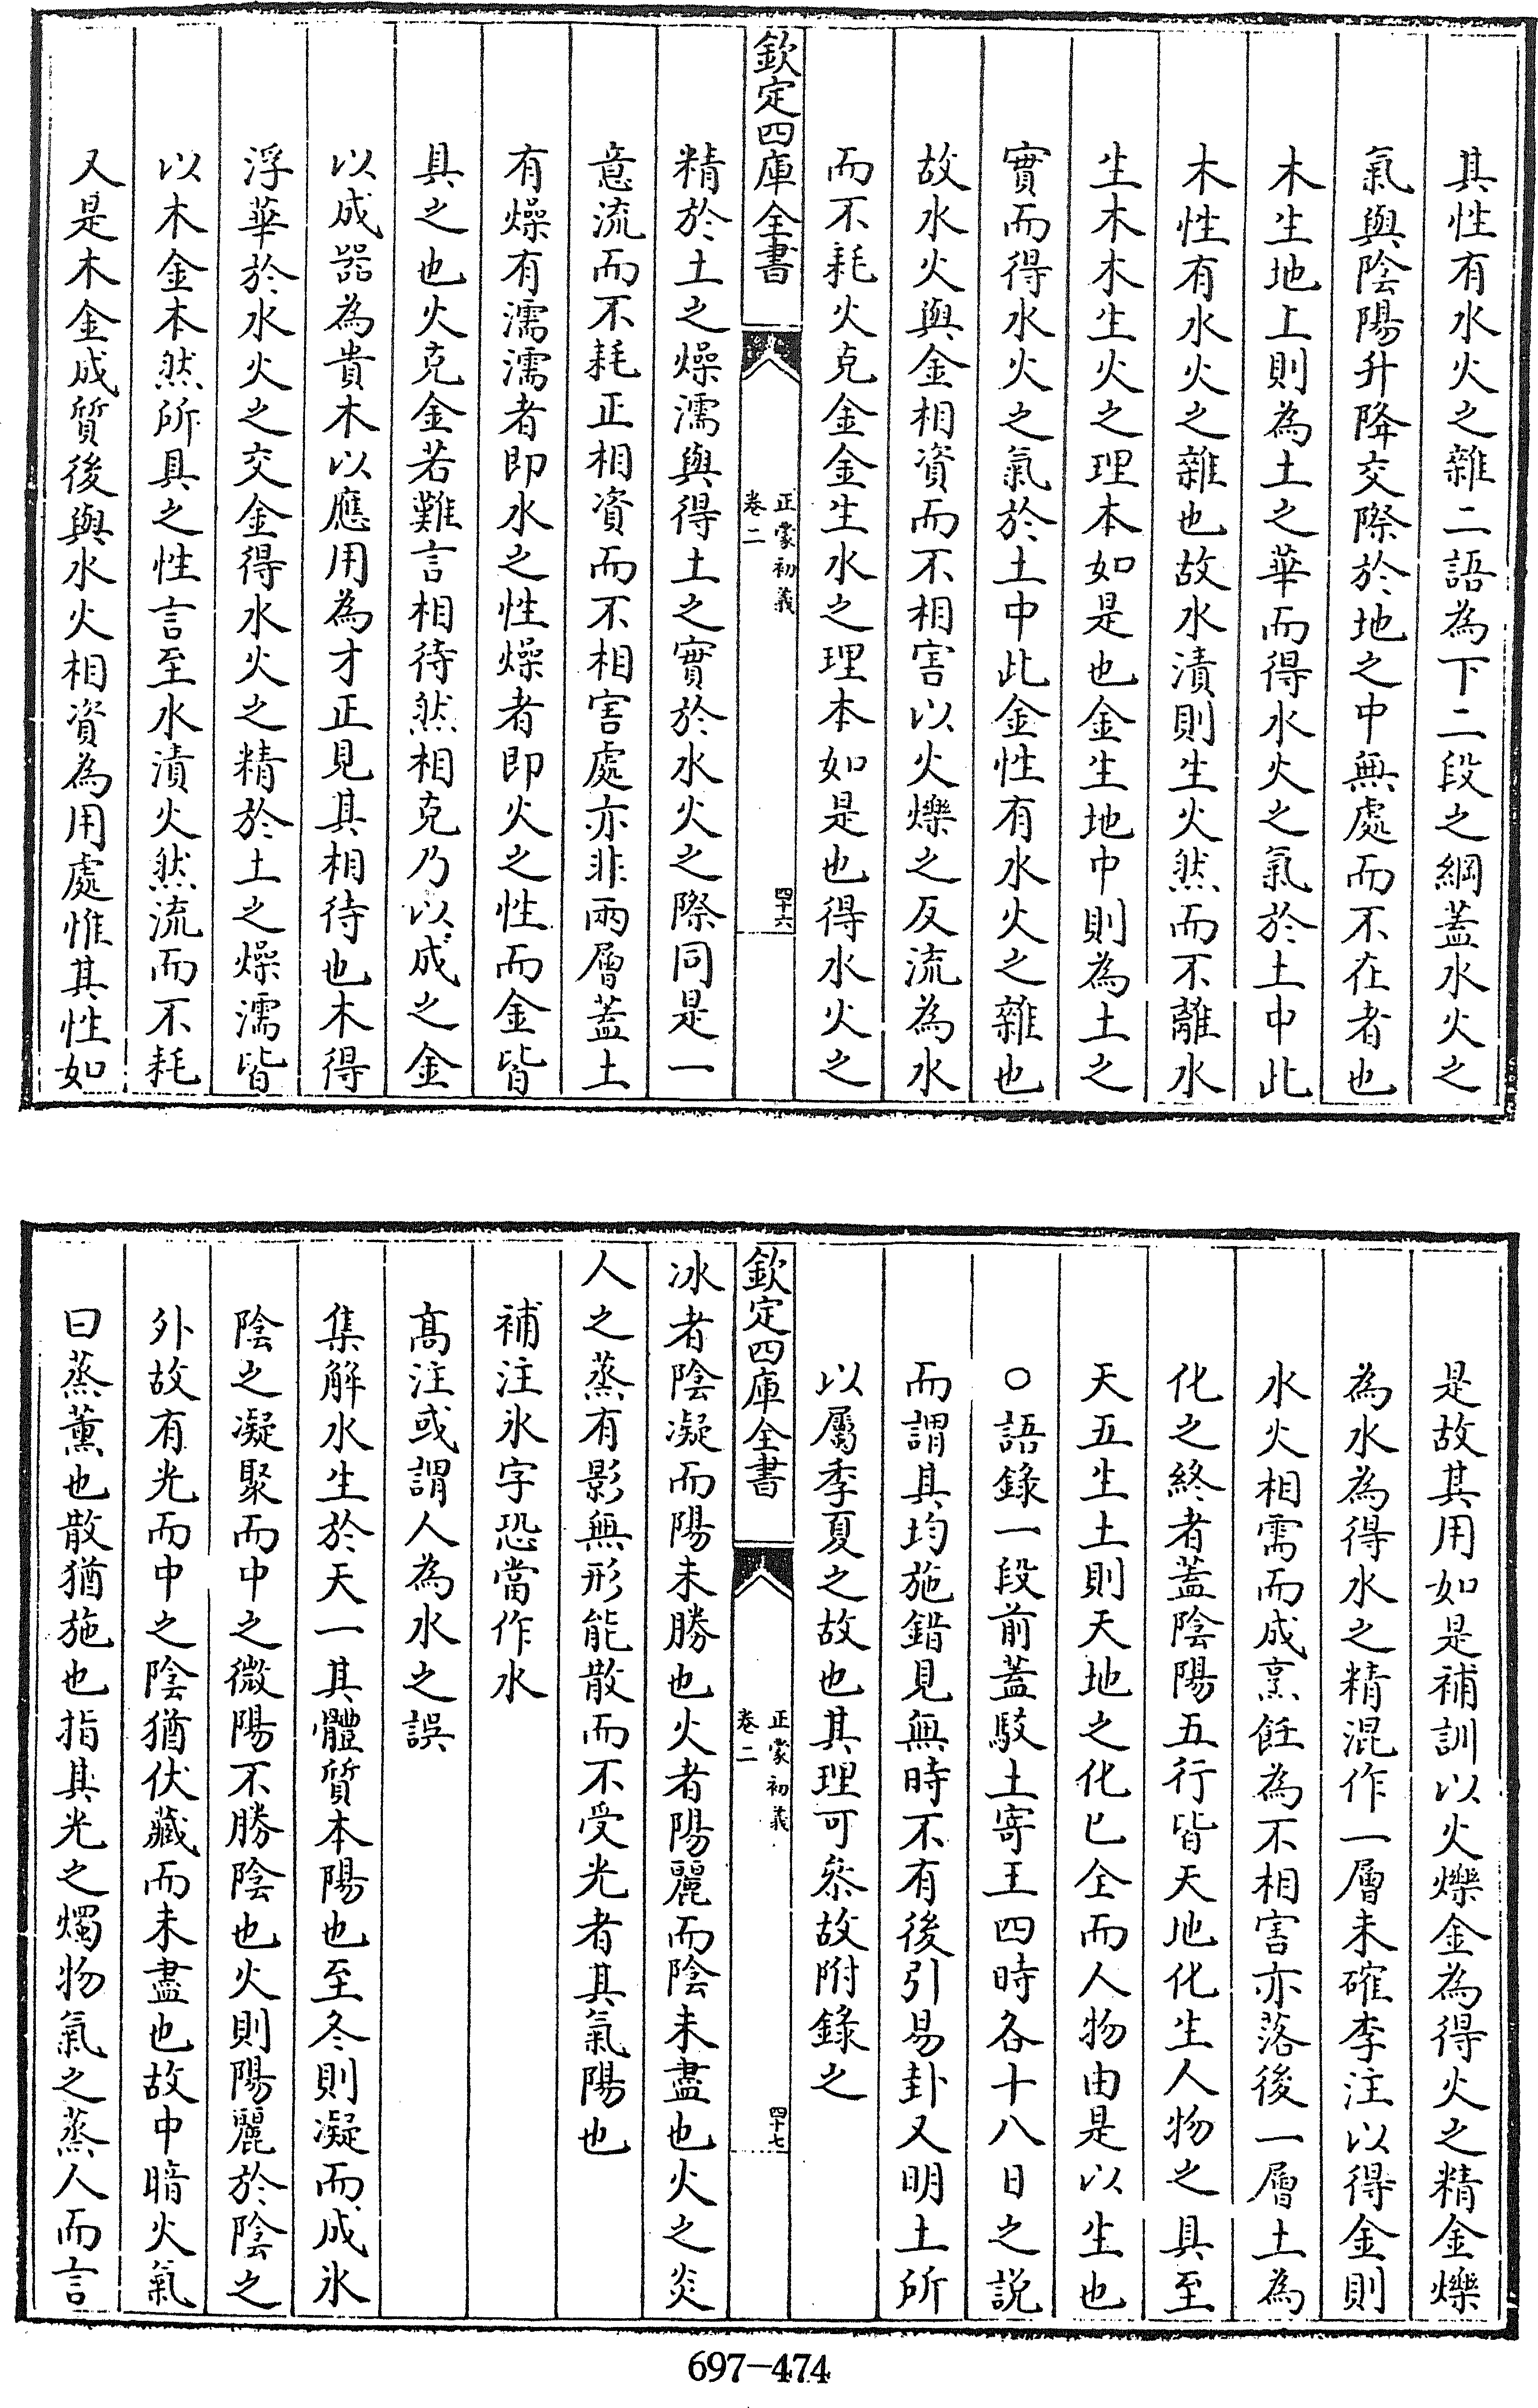 其性有水火之雜二語為下二段之綱蓋水火之
氣與陰陽升降交際於地之中無處而不在者也
木生地上則為土之華而得水火之氣於土中此
木性有水火之雜也故水漬則生火然而不離水
生木木生火之理本如是也金生地中則為土之
實而得水火之氣於土中此金性有水火之雜也
故水火與金相資而不相害以火爍之反流為水
而不耗火克金金生水之理本如是也得水火之
欽定四庫全書
正蒙初義
卷二
四十六
精於土之燥濡與得土之實於水火之際同是一
意流而不耗正相資而不相害處亦非兩層蓋土
有燥有濡濡者即水之性燥者即火之性而金皆
具之也火克金若難言相待然相克乃以成之金
以成器為貴木以應用為才正見其相待也木得
浮華於水火之交金得水火之精於土之燥濡皆
以木金本然所具之性言至水漬火然流而不耗
又是木金成質後與水火相資為用處惟其性如
是故其用如是補訓以火爍金為得火之精金爍
為水為得水之精混作一層未確李注以得金則
水火相需而成烹飪為不相害亦落後一層土為
化之終者蓋陰陽五行皆天地化生人物之具至
天五生土則天地之化已全而人物由是以生也
○語錄一段前蓋駁土寄王四時各十八日之說
而謂其均施錯見無時不有後引易卦又明土所
以屬季夏之故也其理可叅故附錄之
欽定四庫全書
正蒙初義
卷二
四十七
冰者陰凝而陽未勝也火者陽麗而陰未盡也火之炎
人之蒸有影無形能散而不受光者其氣陽也
補注氷字恐當作水
高注或謂人為水之誤
集解水生於天一其體質本陽也至冬則凝而成氷
陰之凝聚而中之微陽不勝陰也火則陽麗於陰之
外故有光而中之陰猶伏藏而未盡也故中暗火氣
曰蒸薰也散猶施也指其光之燭物氣之蒸人而言
697-474